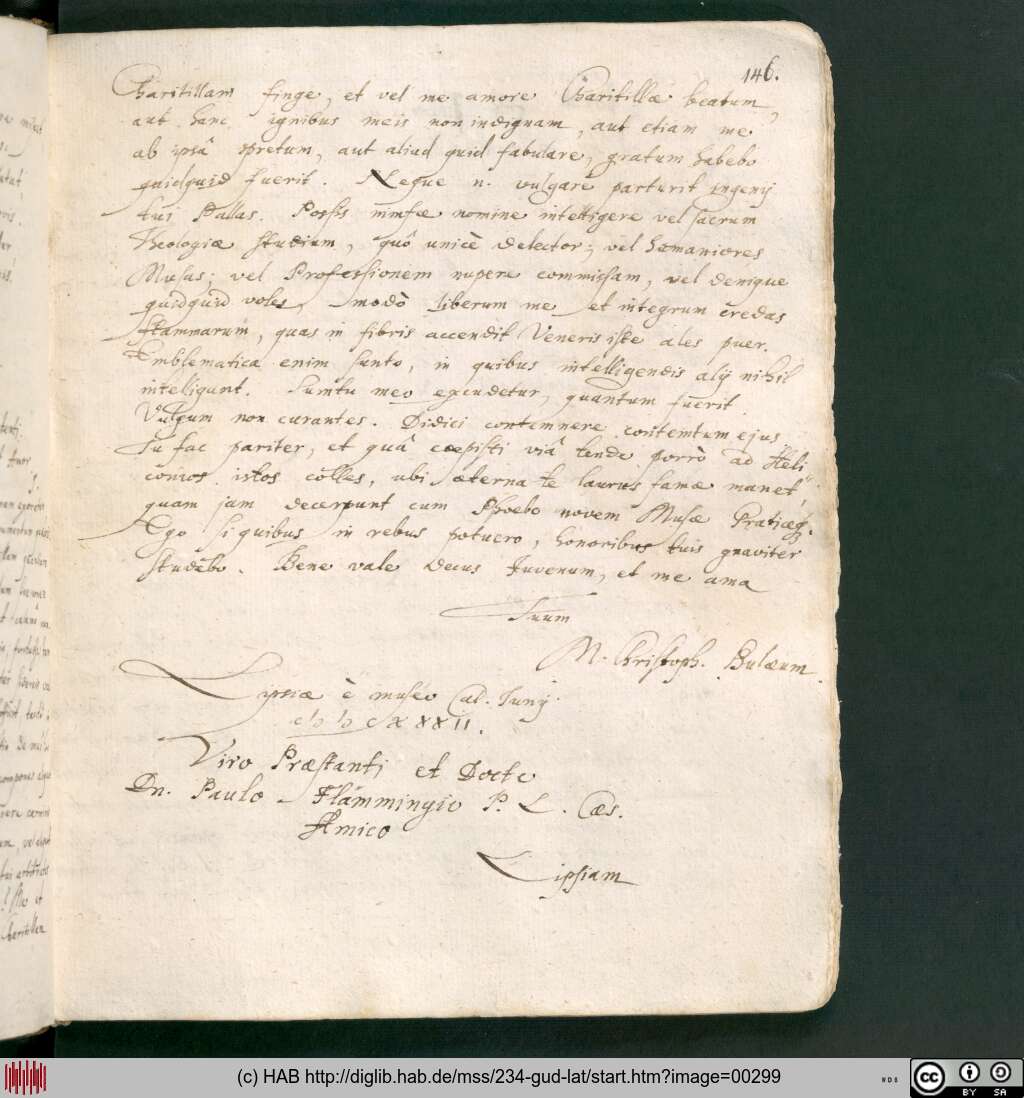 146.
Charitillam finge, et vel me amore Charitillæ beatum,
aut hanc ignibus meis non indignam, aut etiam me
ab ipsâ spretum, aut aliud quid fabulare, gratum habebo
quidquid fuerit. Neque n. vulgare parturit ingenij
tui Pallas. Possis nimfæ nomine intelligere vel sacrum
Theologiæ studium, quô unicè delector; vel humaniores
Musas; vel Professionem nupere commissam, vel denique
quidquid voles, modò liberum me et integrum credas
flammarum, quas in fibris accendit Veneris iste ales puer.
Emblematica enim sunto, in quibus intelligendis alij nihil
intelligant. Sumtu meo excudetur, quantum fuerit.
Vulgum non curantes. Didici contemnere contemtum ejus.
Tu fac pariter, et quâ cœpisti viâ tende porrò ad Heli
conios istos colles, ubi æterna te laurus famæ manet,
quam jam decerpunt cum Phoebo novem Musæ Gratiæq;.
Ego si quibus in rebus potuero, honoribus tuis gnaviter
studebo. Bene vale Decus Juvenum, et me ama
Tuum
M. Christoph. Bulæum.
Lipsiæ è muséo Cal. Junij
cIɔ Iɔ c XXXII.
Viro Præstanti et Docto
Dn. Paulo Flämmingio P. L. Cæs.
Amico
Lipsiam
(c) HAB http://diglib.hab.de/mss/234-gud-lat/start.htm?image=00299
cc BY SA